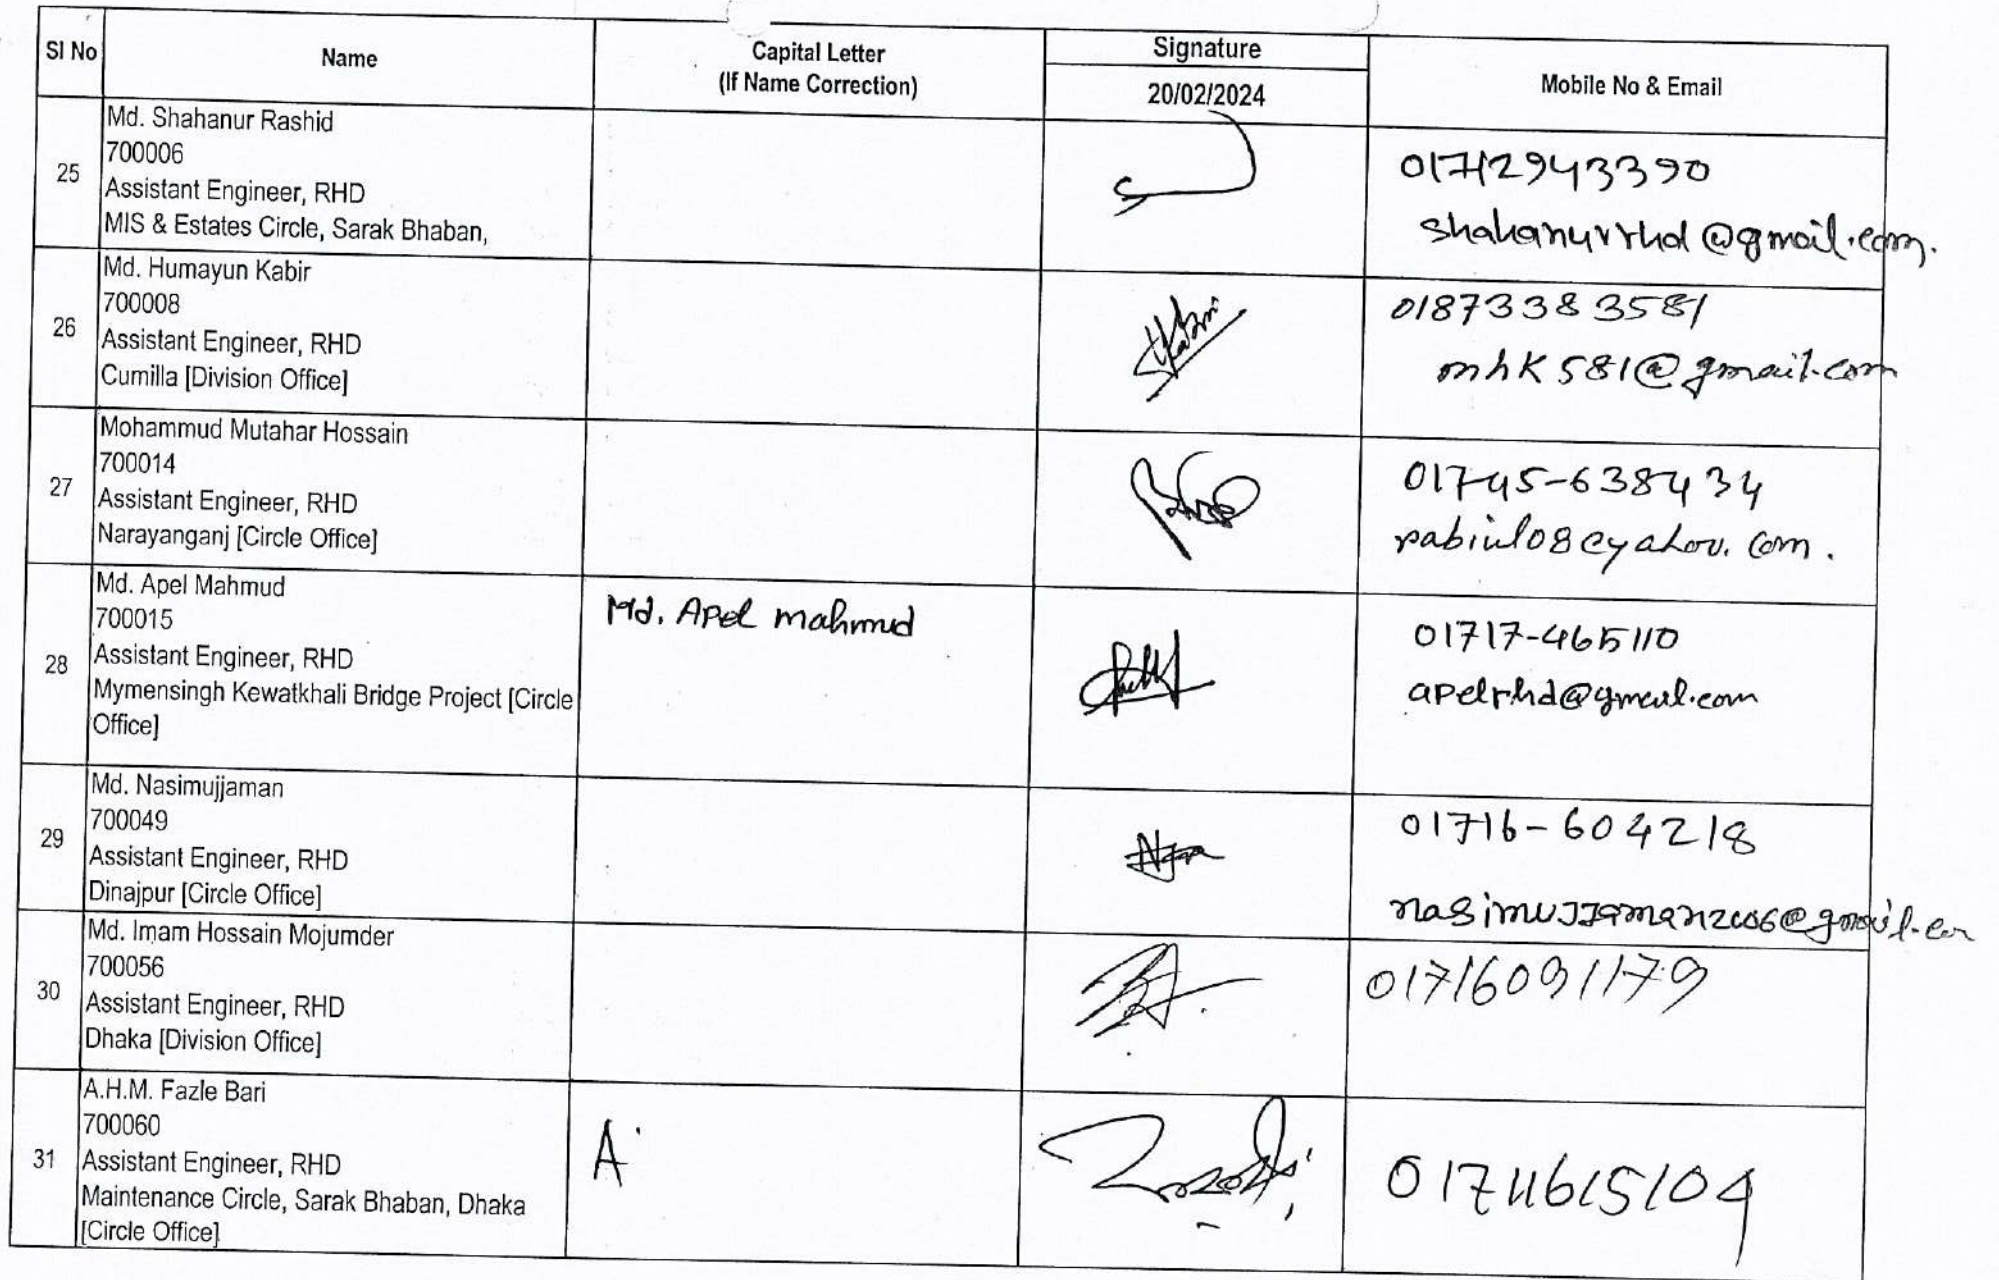 Sl No
Name
Capital Letter
(If Name Correction)
Signature
20/02/2024
Mobile No & Email
25
Md. Shahanur Rashid
700006
Assistant Engineer, RHD
MIS & Estates Circle, Sarak Bhaban,
01712943390
shahanurrhd@gmail.com.
26
Md. Humayun Kabir
700008
Assistant Engineer, RHD
Cumilla [Division Office]
01873383581
mhk581@gmail.com
27
Mohammud Mutahar Hossain
700014
Assistant Engineer, RHD
Narayanganj [Circle Office]
01745-638434
rabiul08@yahoo.com.
28
Md. Apel Mahmud
700015
Assistant Engineer, RHD
Mymensingh Kewatkhali Bridge Project [Circle
Office]
Md. Apel Mahmud
01717-465110
apelrhd@gmail.com
29
Md. Nasimujjaman
700049
Assistant Engineer, RHD
Dinajpur [Circle Office]
01716-604218
30
Md. Imam Hossain Mojumder
700056
Assistant Engineer, RHD
Dhaka [Division Office]
01716091179
31
A.H.M. Fazle Bari
700060
Assistant Engineer, RHD
Maintenance Circle, Sarak Bhaban, Dhaka
[Circle Office]
A
01711615104